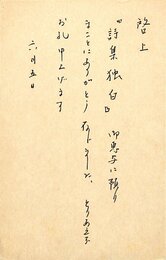 啓上
『詩集独白』御恵与に預り
まことにありがとう存じました、とりあえず
お礼申し上げます
六月五日